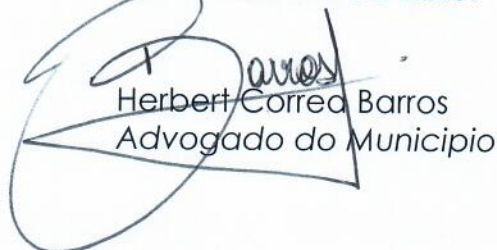 Barros
Herbert Correa Barros
Advogado do Municipio